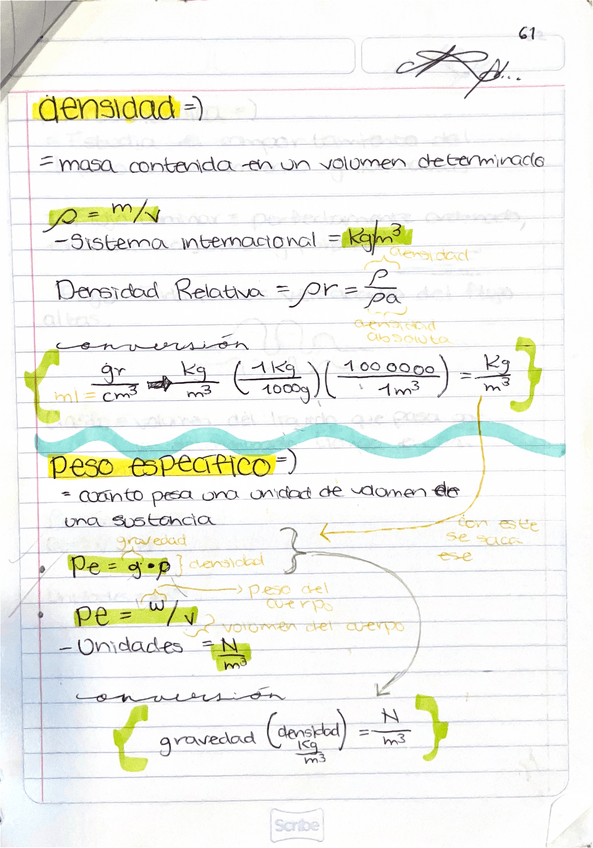 61
densidad =)
= masa contenida en un volumen determinado
ρ = m/v
- Sistema internacional = kg/m³
densidad
Densidad Relativa = ρr = ρ/ρa
densidad
absoluta
conversión
ml = gr/cm³ → kg/m³ (1 kg/1000g)(1000000/1m³) = kg/m³
peso especifico =)
= cuanto pesa una unidad de volumen de
una sustancia
con este
se saca
ese
gravedad
Pe = g • ρ } densidad
peso del
cuerpo
Pe = w/v
volumen del cuerpo
- Unidades = N/m³
conversión
gravedad (densidad kg/m³) = N/m³
Scribe